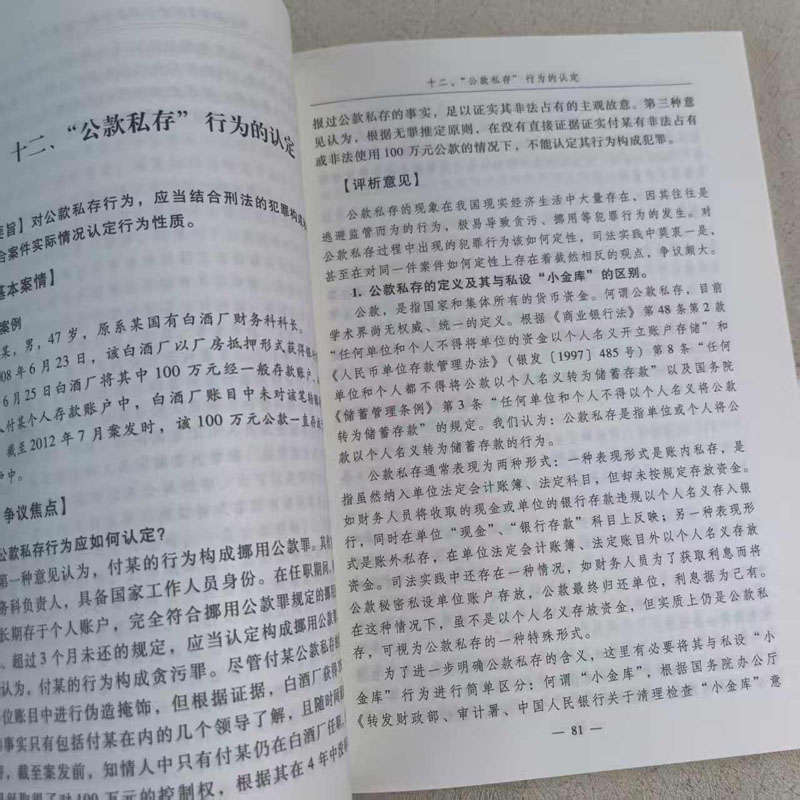 十二、“公款私存”行为的认定
旨】对公款私存行为，应当结合刑法的犯罪构成
合案件实际情况认定行为性质。
基本案情】
案例
某，男，47岁，原系某国有白酒厂财务科科长。
08年6月23日，该白酒厂以厂房抵押形式获得银
6月25日白酒厂将其中100万元经一般存款账户
人付某个人存款账户中，白酒厂账目中未对该笔
截至2012年7月案发时，该100万元公款一直存
中。
争议焦点】
公款私存行为应如何认定？
第一种意见认为，付某的行为构成挪用公款罪。
务科负责人，具备国家工作人员身份。在任职期间，
长期存于个人账户，完全符合挪用公款罪规定的挪
、超过3个月未还的规定，应当认定构成挪用公款
认为，付某的行为构成贪污罪。尽管付某公款私存
位账目中进行伪造掩饰，但根据证据，白酒厂获得
事实只有包括付某在内的几个领导了解，且随时间
，截至案发前，知情人中只有付某仍在白酒厂任职，
了对100万元的控制权，根据其在4年中
十二、“公款私存”行为的认定
报过公款私存的事实，足以证实其非法占有的主观故意。第三种意
见认为，根据无罪推定原则，在没有直接证据证实付某有非法占有
或非法使用100万元公款的情况下，不能认定其行为构成犯罪。
【评析意见】
公款私存的现象在我国现实经济生活中大量存在，因其往往是
逃避监管而为的行为，极易导致贪污、挪用等犯罪行为的发生。对
公款私存过程中出现的犯罪行为该如何定性，司法实践中莫衷一是、
甚至在对同一案件如何定性上存在着截然相反的观点，争议颇大。
1. 公款私存的定义及其与私设“小金库”的区别。
公款，是指国家和集体所有的货币资金。何谓公款私存，目前
学术界尚无权威、统一的定义。根据《商业银行法》第48条第2款
“任何单位和个人不得将单位的资金以个人名义开立账户存储”和
《人民币单位存款管理办法》（银发［1997］485号）第8条“任何
单位和个人都不得将公款以个人名义转为储蓄存款”以及国务院
《储蓄管理条例》第3条“任何单位和个人不得以个人名义将公款
转为储蓄存款”的规定。我们认为：公款私存是指单位或个人将公
款以个人名义转为储蓄存款的行为。
公款私存通常表现为两种形式：一种表现形式是账内私存，是
指虽然纳入单位法定会计账簿、法定科目，但却未按规定存放资金。
如财务人员将收取的现金或单位的银行存款违规以个人名义存入银
行，同时在单位“现金”、“银行存款”科目上反映；另一种表现形
式是账外私存，在单位法定会计账簿、法定账目外以个人名义存放
资金。司法实践中还存在一种情况，如财务人员为了获取利息而将
公款秘密私设单位账户存放，公款最终归还单位，利息据为己有。
在这种情况下，虽不是以个人名义存放资金，但实质上仍是公款私
存，可视为公款私存的一种特殊形式。
为了进一步明确公款私存的含义，这里有必要将其与私设“小
金库”行为进行简单区分：何谓“小金库”，根据国务院办公厅
《转发财政部、审计署、中国人民银行关于清理检查“小金库”意
— 81 —